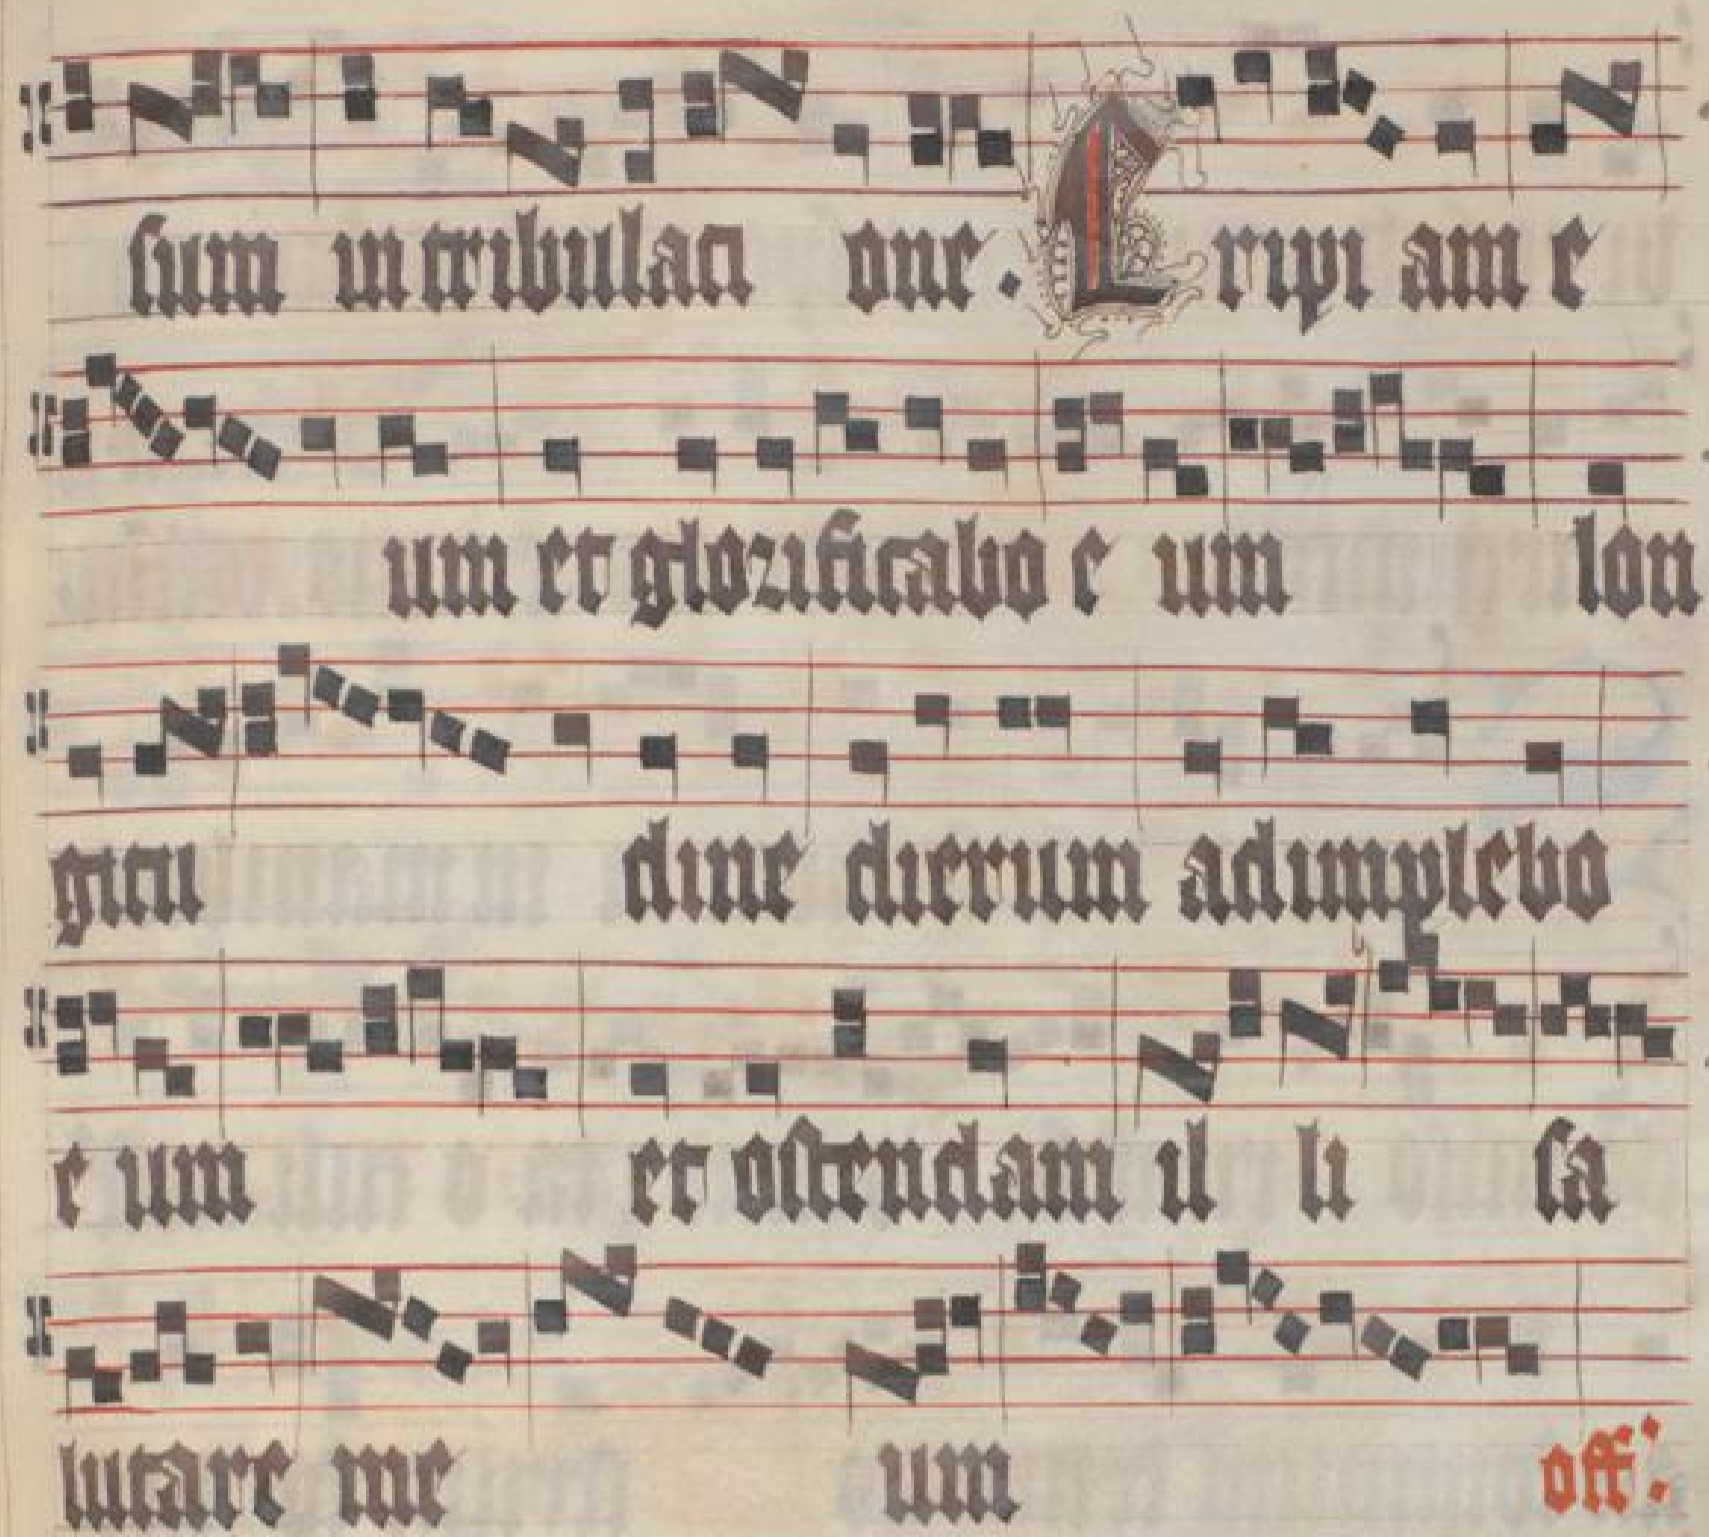 sum in tribulaci one. Eripi am e
um et glorificabo e um lon
gitu dine dierum adimplebo
e um et ostendam il li sa
lutare me um off: